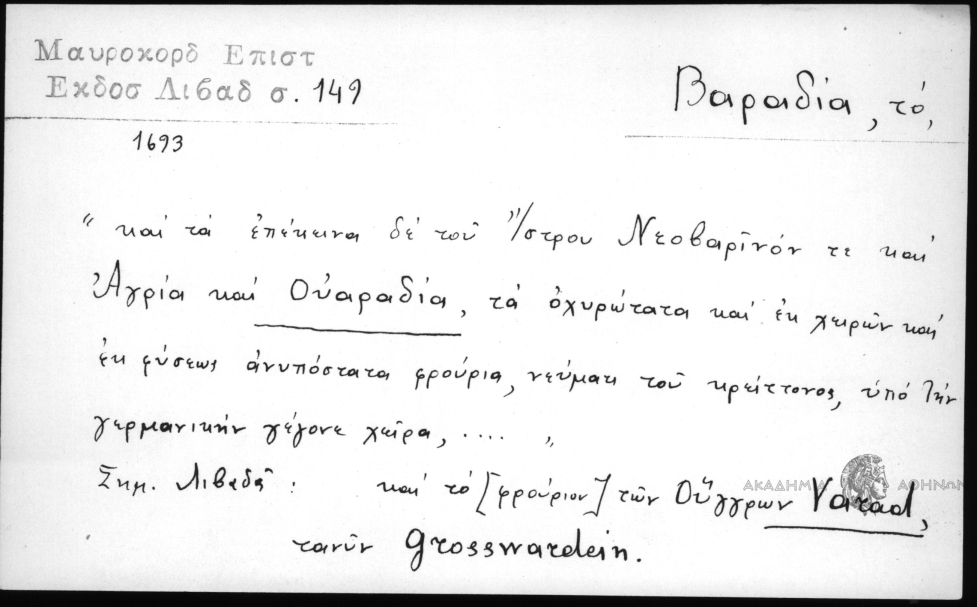 Μαυροκορδ Επιστ
Εκδοσ Λιβαδ σ. 149
Βαραδία, τό,
1693
“ καί τά ἐπέκεινα δέ τοῦ Ἴστρου Νεοβαρῖνόν τε καί
Ἀγρία καί Οὐαραδία, τά ὀχυρώτατα καί ἐκ χειρῶν καί
ἐκ φύσεως ἀνυπόστατα φρούρια, νεύματι τοῦ κρείττονος, ὑπό τήν
γερμανικήν γέγονε χεῖρα, .... „
Σημ. Λιβαδᾶ : καί τό [φρούριον] τῶν Οὔγγρων Varad,
τανῦν Grosswardein.
ΑΚΑΔΗΜΙΑ ΑΘΗΝΩΝ